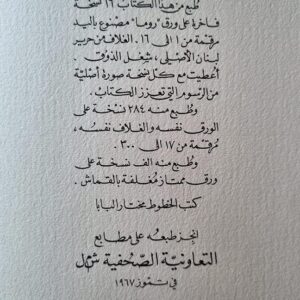 طُبع من هذا الكتاب ١٦ نسخة
فاخرة على ورق "روما" مصنوع باليد
مرقمة من ١ الى ١٦. الغلاف من حرير
لبنان الأصلي، شغل الذوق.
أُعطيت مع كل نسخة صورة أصلية
من الرسوم التي تعزز الكتاب.
وطُبع منه ٢٨٤ نسخة على
الورق نفسه والغلاف نفسه،
مُرقمة من ١٧ الى ٣٠٠.
وطُبع منه الف نسخة على
ورق ممتاز مُغلفة بالقماش.
كتب الخطوط مختار البابا
انجز طبعه على مطابع
التعاونية الصحفية ش م ل
في تموز ١٩٦٧